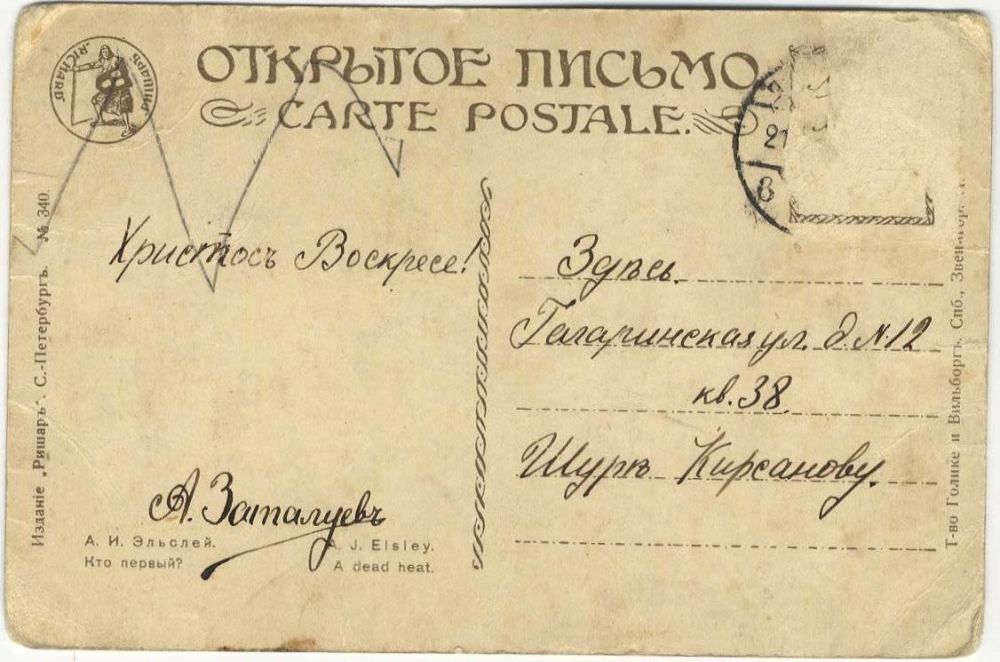 ОТКРЫТОЕ ПИСЬМО
CARTE POSTALE.
РИШАРЪ
"RICHARD"
21
8
Христосъ Воскресе!
Здѣсь.
Гагаринская ул. д. N. 12
кв. 38.
Шурѣ Кирсанову.
А. Заталуевъ
А. И. Эльслей.
Кто первый?
A. J. Elsley.
A dead heat.
Изданіе „Ришаръ“. С.-Петербургъ. № 340.
Т-во Голике и Вильборгъ. Спб.,